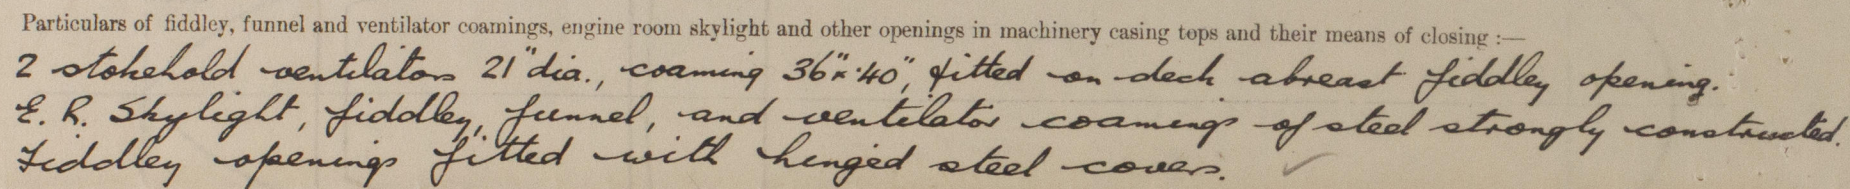 Particulars of fiddley, funnel and ventilator coamings, engine room skylight and other openings in machinery casing tops and their means of closing :—
2 stokehold ventilators 21" dia., coaming 36" x .40", fitted on deck abreast fiddley opening.
E. R. Skylight, fiddley, funnel, and ventilator coamings of steel strongly constructed.
Fiddley openings fitted with hinged steel covers.